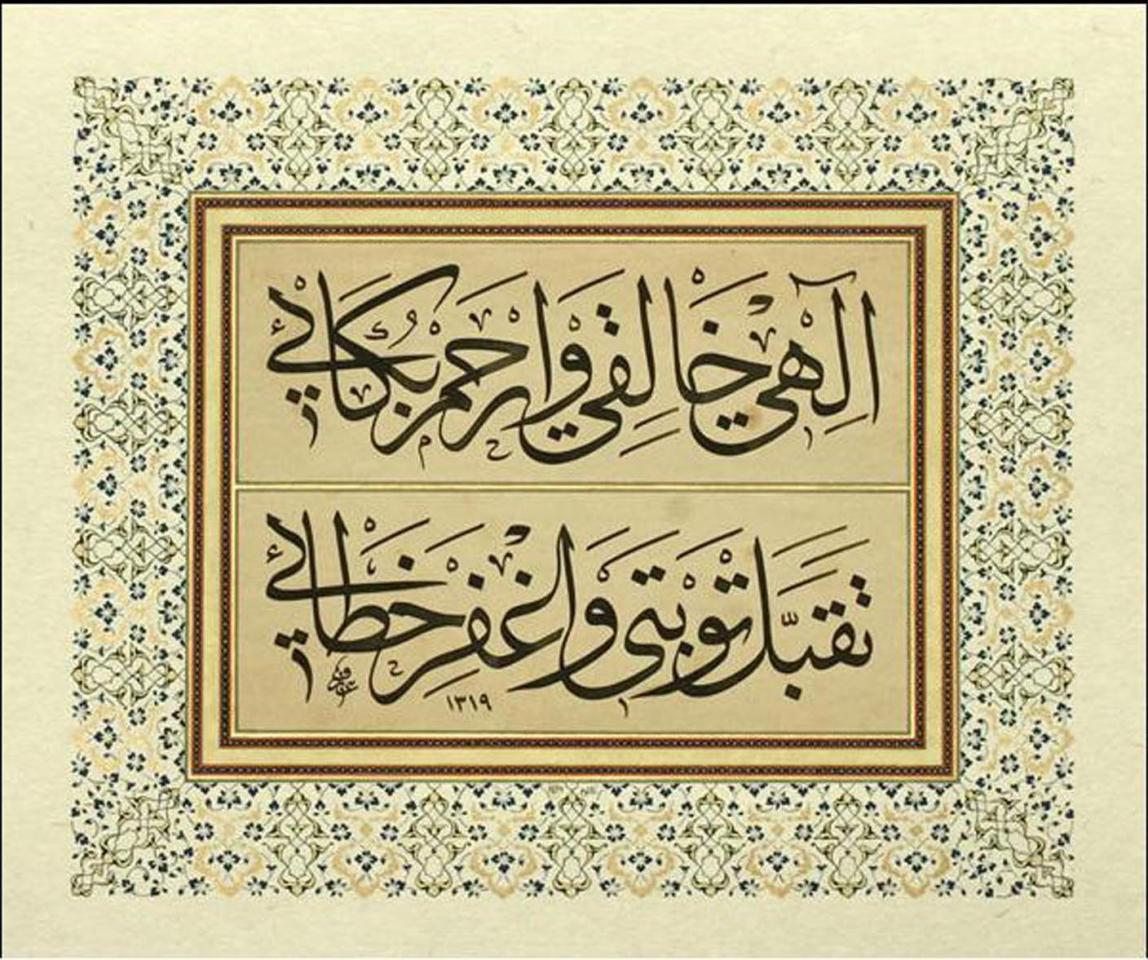 الٓهي خالقي وارحم بكائي
تقبّل توبتي واغفر خطائي
١٣١٩